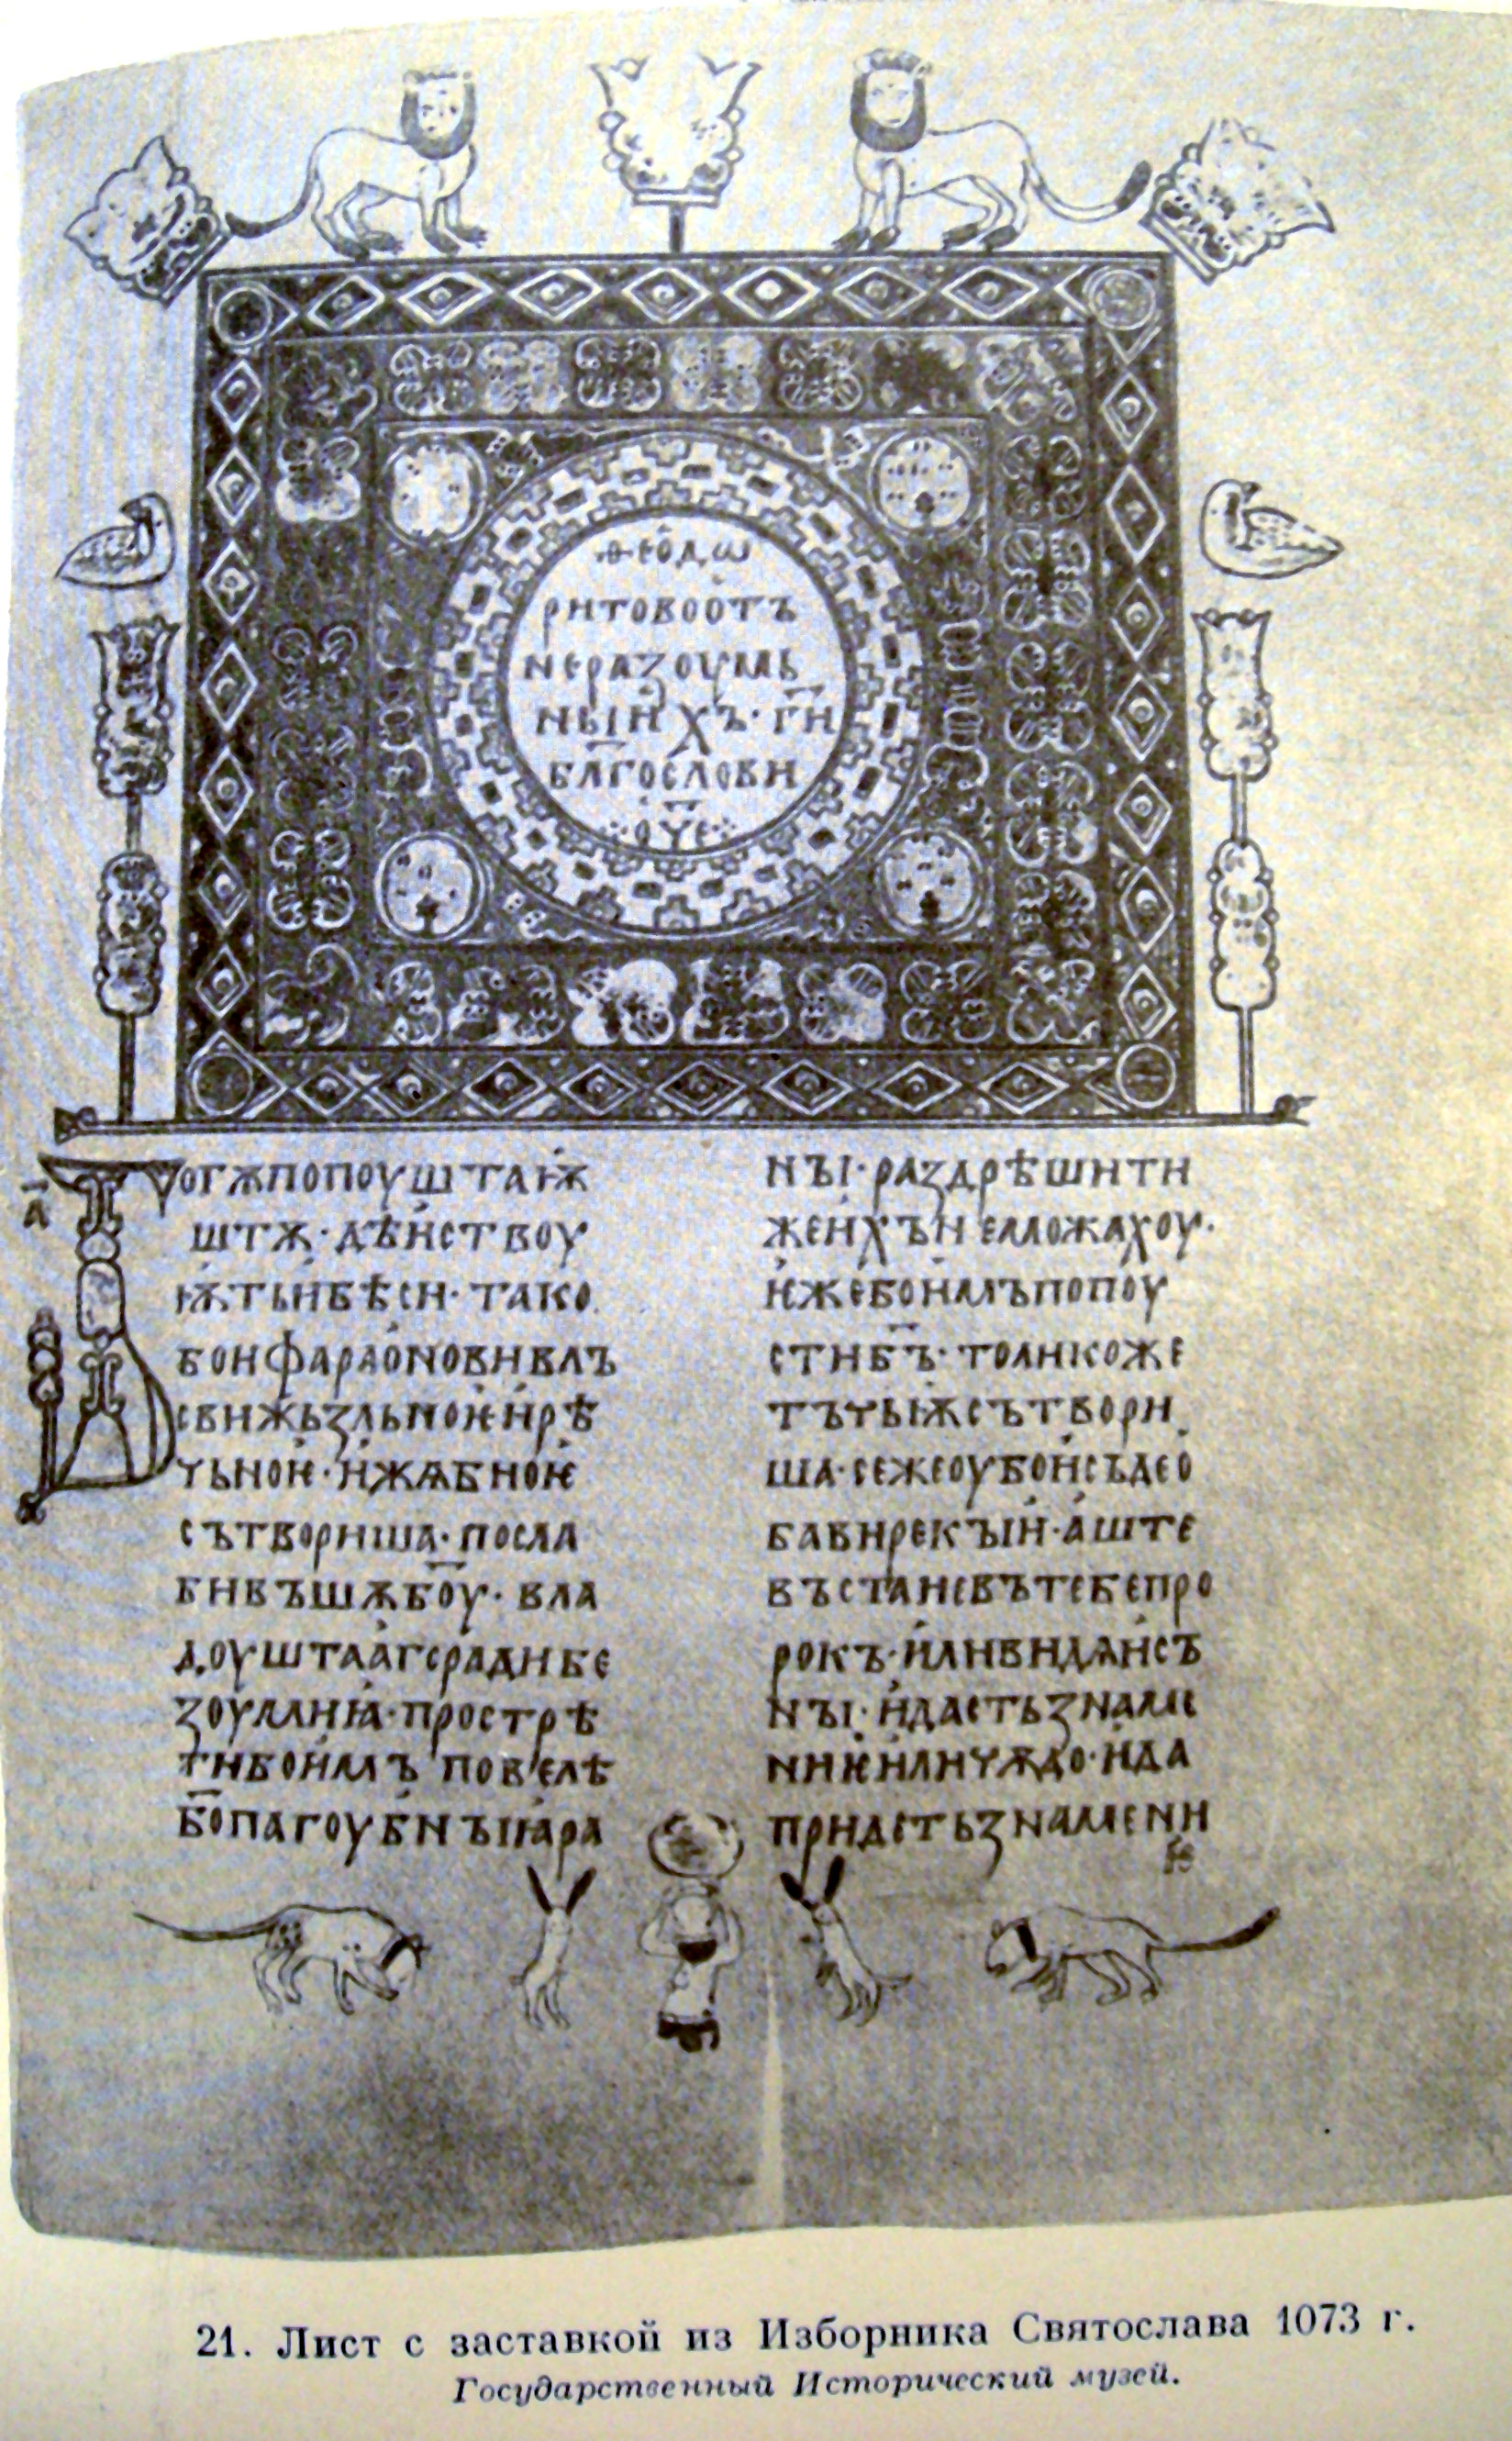 ѳеодѡ
ритовоотъ
неразоумь
нꙑихъ· г҃и
бл҃гослови
о҃че
а҃
огѫпопоуштаѭ
штѫ· дѣиствоу
ѭтьибѣси· тако
бонфараоновивлъ
свижьзльноѥирѣ
чьноѥ· ижѧбноѥ
сътвориша· посла
бивъшѫб҃оу· вла
доуштаагсрадибе
зоумиꙗ· прострѣ
ти боимъ повелѣ
б҃опагоубнъııара
нъı· раздрѣшити
жеихънеможахоу·
ѥжебоимъпопоу
стиб҃ъ· толикоже
тъчьѭсътвори
ша· сежеоубоисъдео
бавирекъıи· аште
въстаневътебепро
рокъ· иливидѧисъ
нъı· идастьзнаме
ниѥиличѫдо· ида
придастьзнамени
ѥ
21. Лист с заставкой из Изборника Святослава 1073 г.
Государственный Исторический музей.